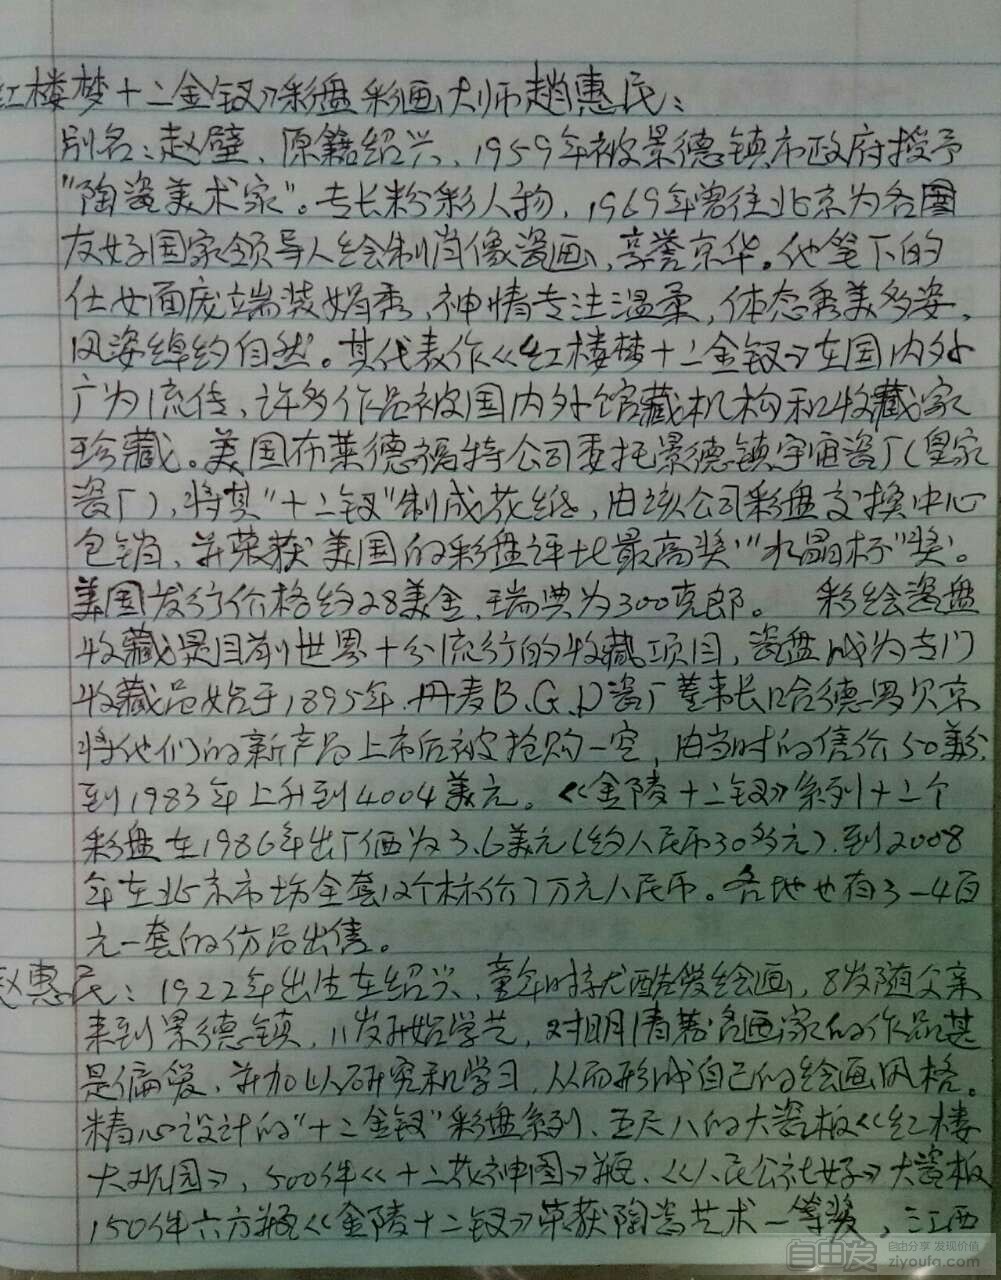 红楼梦十二金钗》彩盘彩画大师趙惠民：
别名：赵璧、原籍绍兴、1959年被景德镇市政府授予
"陶瓷美术家"。专长粉彩人物，1969年曾往北京为各国
友好国家领导人绘制肖像瓷画，享誉京华。他笔下的
仕女面庞端装娟秀，神情专注温柔，体态秀美多姿、
风姿绰约自然。其代表作《红楼梦十二金钗》在国内外
广为流传、许多作品被国内外馆藏机构和收藏家
珍藏。美国布莱德福特公司委托景德镇宇宙瓷厂(皇家
瓷厂)，将其"十二钗"制成花纸，由该公司彩盘交换中心
包销、并荣获美国的彩盘评比最高奖"水晶杯"奖。
美国发行价格约28美金、瑞典为300克郎。 彩绘瓷盘
收藏是目前世界十分流行的收藏项目，瓷盘成为专门
收藏品始于1895年.丹麦B、G、D瓷厂董事长哈德罗贝京
将他们的新产品上市后被抢购一空，由当时的售价50美分
到1983年上升到4004美元。《金陵十二钗》系列十二个
彩盘在1986年出厂価为3.6美元(约人民币30多元).到2008
年在北京市场全套12个标价7万元人民币。各地也有3—4百
元一套的仿品出售。
赵惠民：1922年出生在绍兴、童年时就酷爱绘画，8岁随父亲
来到景德镇，11岁开始学艺，对明清著名画家的作品甚
是偏爱、并加以研究和学习，从而形成自己的绘画风格。
精心设计的"十二金钗"彩盘系列、五尺八的大瓷板《红楼
大观园》，500件《十二花神图》瓶、《人民公社好》大瓷板
150件六方瓶《金陵十二钗》荣获陶瓷艺术一等奖，江西
自由发
自由分享 发现价值
ziyoufa.com